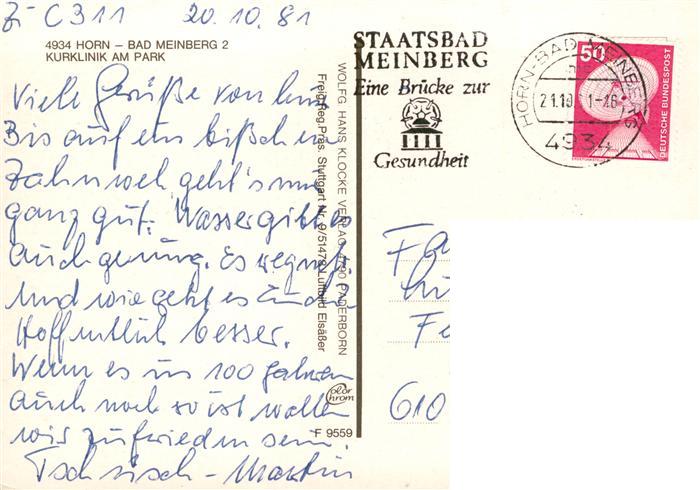 Zi C311 20.10.81
4934 HORN – BAD MEINBERG 2
KURKLINIK AM PARK
Viele Grüße von hier
Bis auf ein bißchen
Zahnweh geht's mir
ganz gut. Wasser gibt es
auch genung. Es regnet.
Und wie geht es Euch
Hoffentlich besser.
Wenn es in 100 Jahren
auch noch so ist wollen
wir zufrieden sein.
Tschüsch - Martin
WOLFG. HANS KLOCKE VERLAG 4790 PADERBORN
Freig. Reg. Präs. Stuttgart Nr. 9/51479 Luftbild Elsäßer
color
chrom
F 9559
STAATSBAD
MEINBERG
Eine Brücke zur
Gesundheit
HORN-BAD MEINBERG
21.10
4934
50
DEUTSCHE BUNDESPOST
Fa
Fe
610